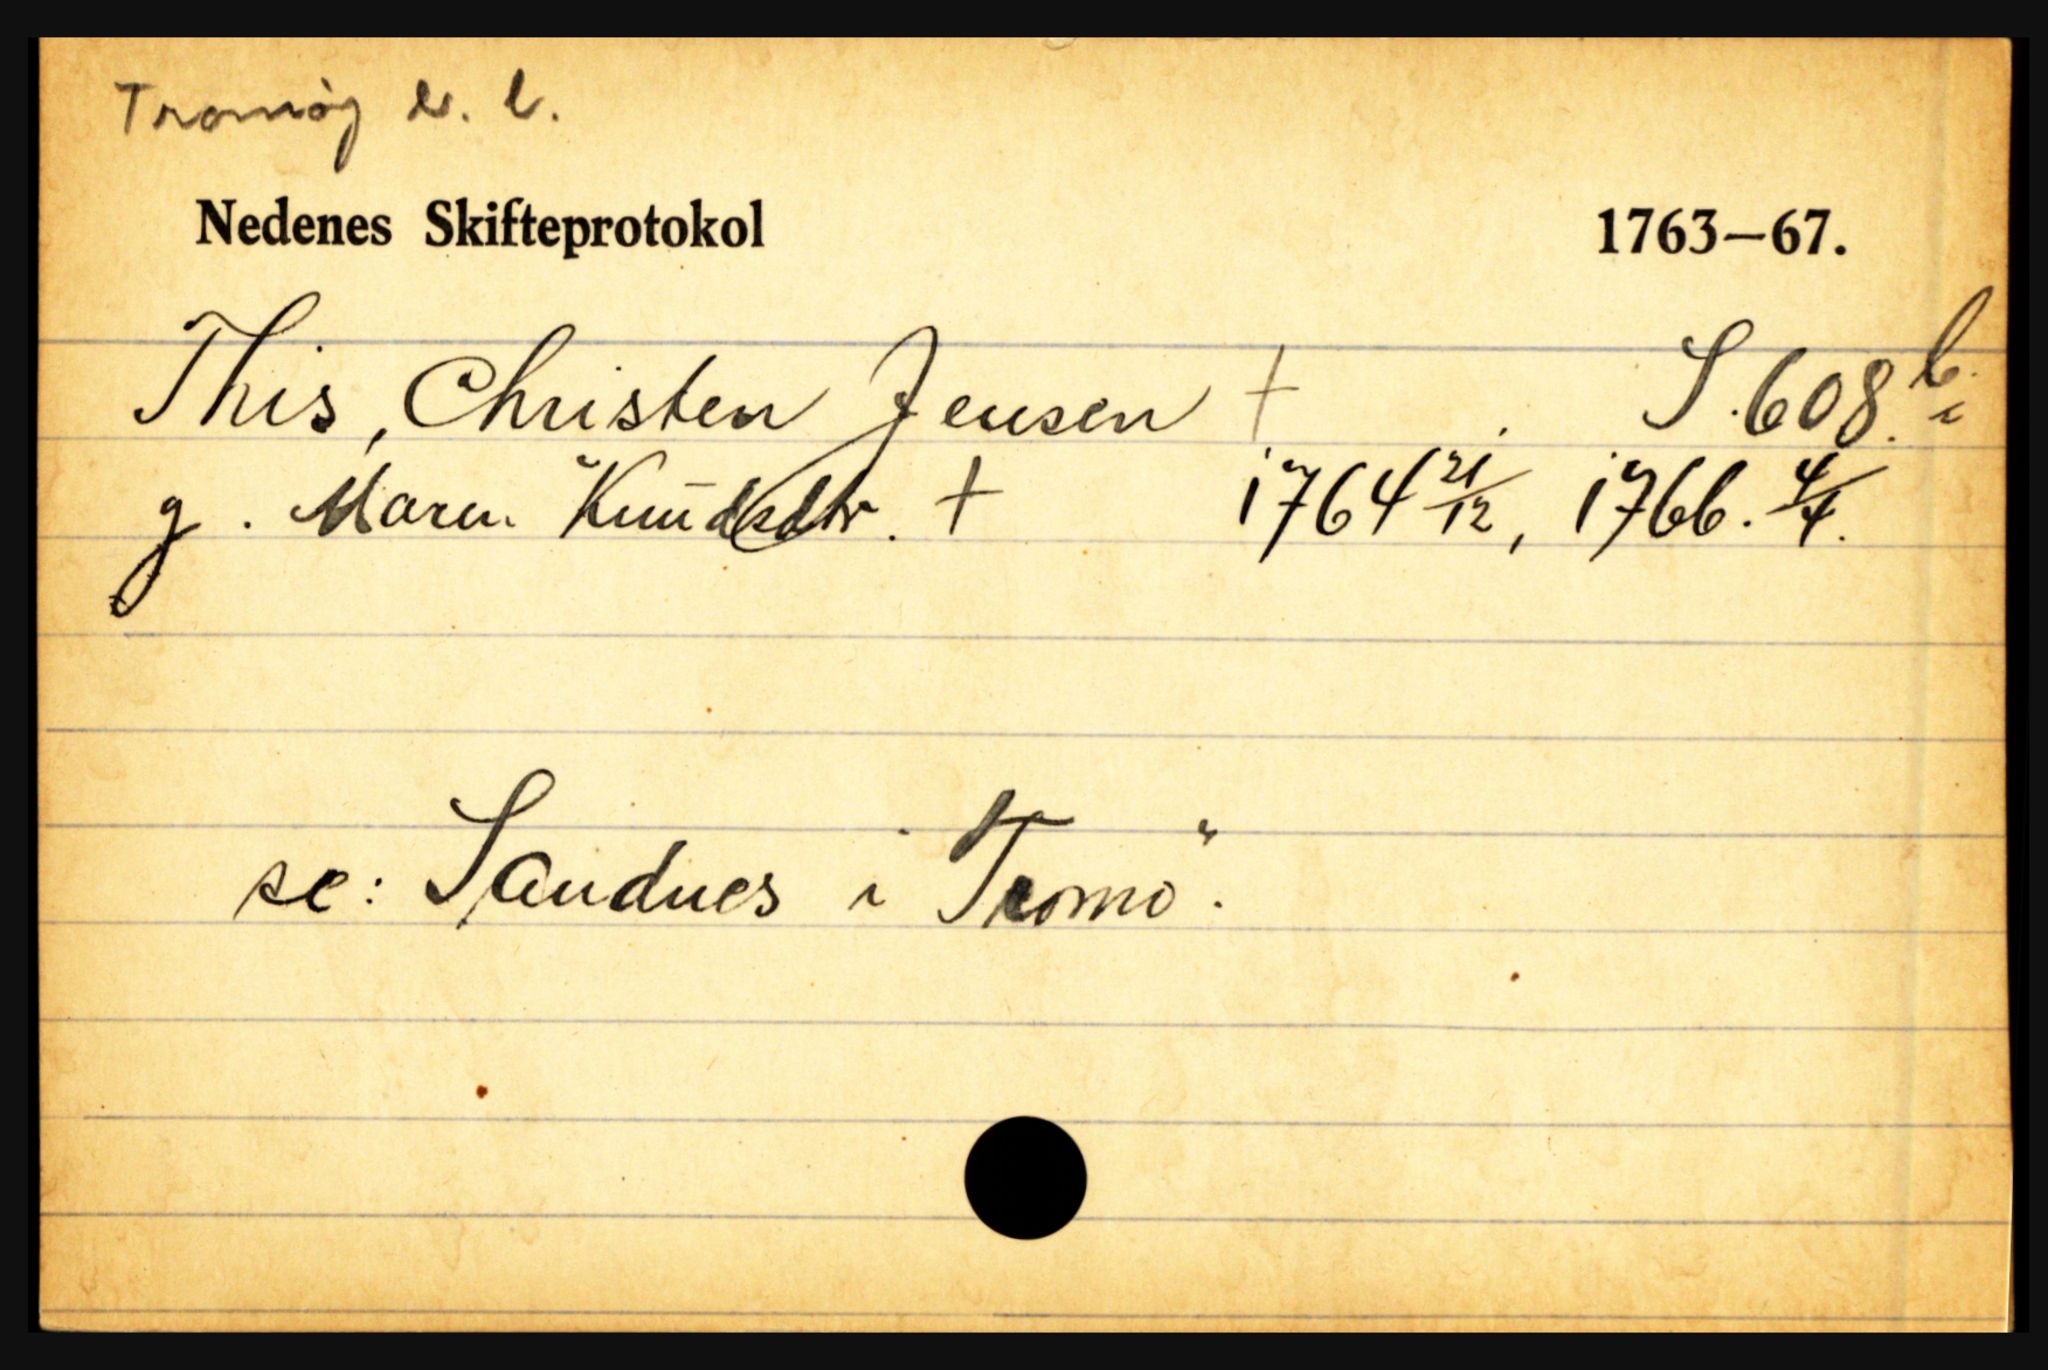 Tromøy
Nedenes Skifteprotokol 1763–67.
This, Christen Jensen † S. 608 b. i
g. Maren Knūdsdtr. † 1764 21/12, 1766. 4/4.
se: Sandnes i Tromö.